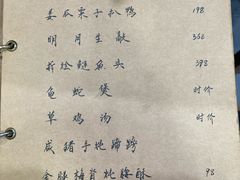 姜瓜栗子扒鸭 198
明月生敲 362
拆烩鲢鱼头 398
龟蛇煲 时价
草鸡汤 时价
咸猪手地蹄蹄
金腿梅脊桃腰酥 98